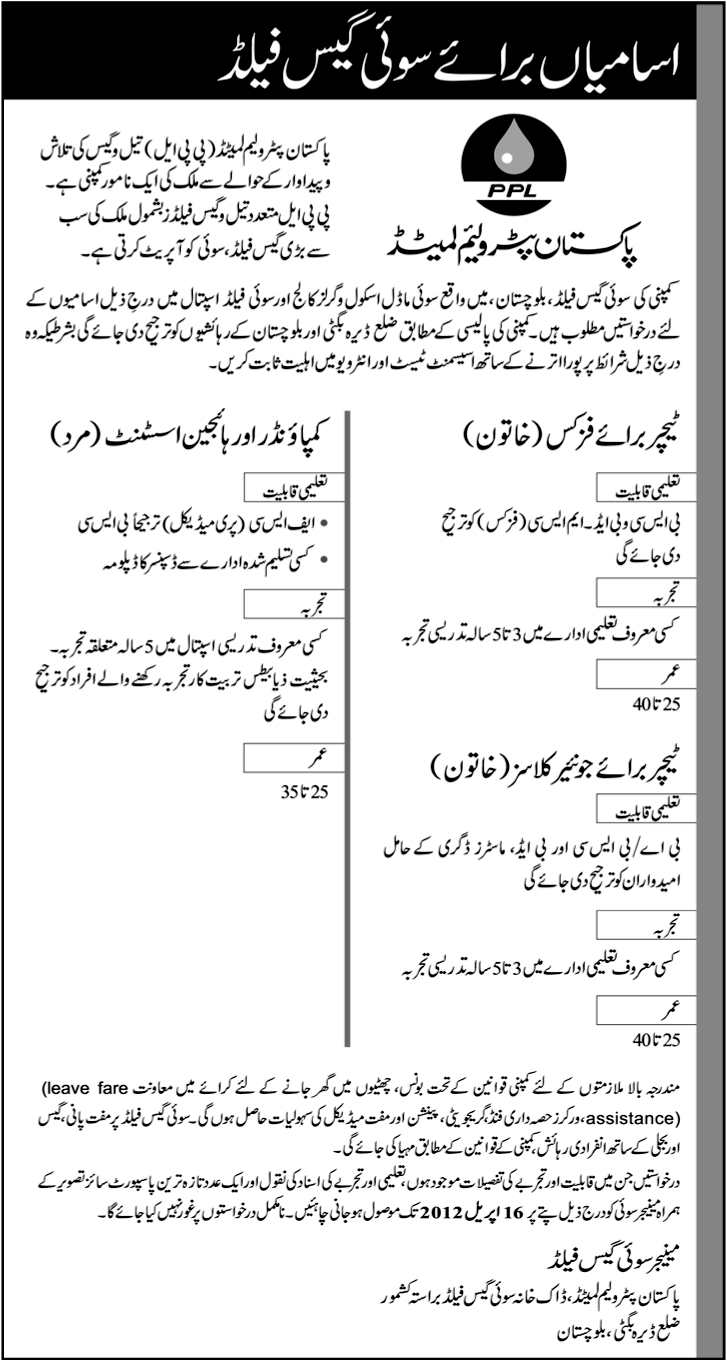 اسامیاں برائے سوئی گیس فیلڈ
PPL
پاکستان پیٹرولیئم لمیٹڈ
پاکستان پٹرولیم لمیٹڈ (پی پی ایل) تیل و گیس کی تلاش
و پیداوار کے حوالے سے ملک کی ایک نامور کمپنی ہے۔
پی پی ایل متعدد تیل و گیس فیلڈز بشمول ملک کی سب
سے بڑی گیس فیلڈ، سوئی کو آپریٹ کرتی ہے۔
کمپنی کی سوئی گیس فیلڈ، بلوچستان، میں واقع سوئی ماڈل اسکول و گرلز کالج اور سوئی فیلڈ اسپتال میں درج ذیل اسامیوں کے
لئے درخواستیں مطلوب ہیں۔ کمپنی کی پالیسی کے مطابق ضلع ڈیرہ بگٹی اور بلوچستان کے رہائشیوں کو ترجیح دی جائے گی بشرطیکہ وہ
درج ذیل شرائط پر پورا اترنے کے ساتھ اسیسمنٹ ٹیسٹ اور انٹرویو میں اہلیت ثابت کریں۔
ٹیچر برائے فزکس (خاتون)
تعلیمی قابلیت
بی ایس سی و بی ایڈ۔ ایم ایس سی (فزکس) کو ترجیح
دی جائے گی
تجربہ
کسی معروف تعلیمی ادارے میں 3 تا 5 سالہ تدریسی تجربہ
عمر
25 تا 40
ٹیچر برائے جونیئر کلاسز (خاتون)
تعلیمی قابلیت
بی اے/بی ایس سی اور بی ایڈ، ماسٹرز ڈگری کے حامل
امیدواران کو ترجیح دی جائے گی
تجربہ
کسی معروف تعلیمی ادارے میں 3 تا 5 سالہ تدریسی تجربہ
عمر
25 تا 40
کمپاؤنڈر اور ہائجین اسسٹنٹ (مرد)
تعلیمی قابلیت
• ایف ایس سی (پری میڈیکل) ترجیحاً بی ایس سی
• کسی تسلیم شدہ ادارے سے ڈسپنسر کا ڈپلومہ
تجربہ
کسی معروف تدریسی اسپتال میں 5 سالہ متعلقہ تجربہ۔
بحیثیت ذیابیطس تربیت کار تجربہ رکھنے والے افراد کو ترجیح
دی جائے گی
عمر
25 تا 35
مندرجہ بالا ملازمتوں کے لئے کمپنی قوانین کے تحت بونس، چھٹیوں میں گھر جانے کے لئے کرائے میں معاونت (leave fare
assistance)، ورکرز حصہ داری فنڈ، گریجویٹی، پینشن اور مفت میڈیکل کی سہولیات حاصل ہوں گی۔ سوئی گیس فیلڈ پر مفت پانی، گیس
اور بجلی کے ساتھ انفرادی رہائش، کمپنی کے قوانین کے مطابق مہیا کی جائے گی۔
درخواستیں جن میں قابلیت اور تجربے کی تفصیلات موجود ہوں، تعلیمی اور تجربے کی اسناد کی نقول اور ایک عدد تازہ ترین پاسپورٹ سائز تصویر کے
ہمراہ مینیجر سوئی کو درج ذیل پتے پر 16 اپریل 2012 تک موصول ہو جانی چاہئیں۔ نامکمل درخواستوں پر غور نہیں کیا جائے گا۔
مینیجر سوئی گیس فیلڈ
پاکستان پٹرولیم لمیٹڈ، ڈاک خانہ سوئی گیس فیلڈ براستہ کشمور
ضلع ڈیرہ بگٹی، بلوچستان